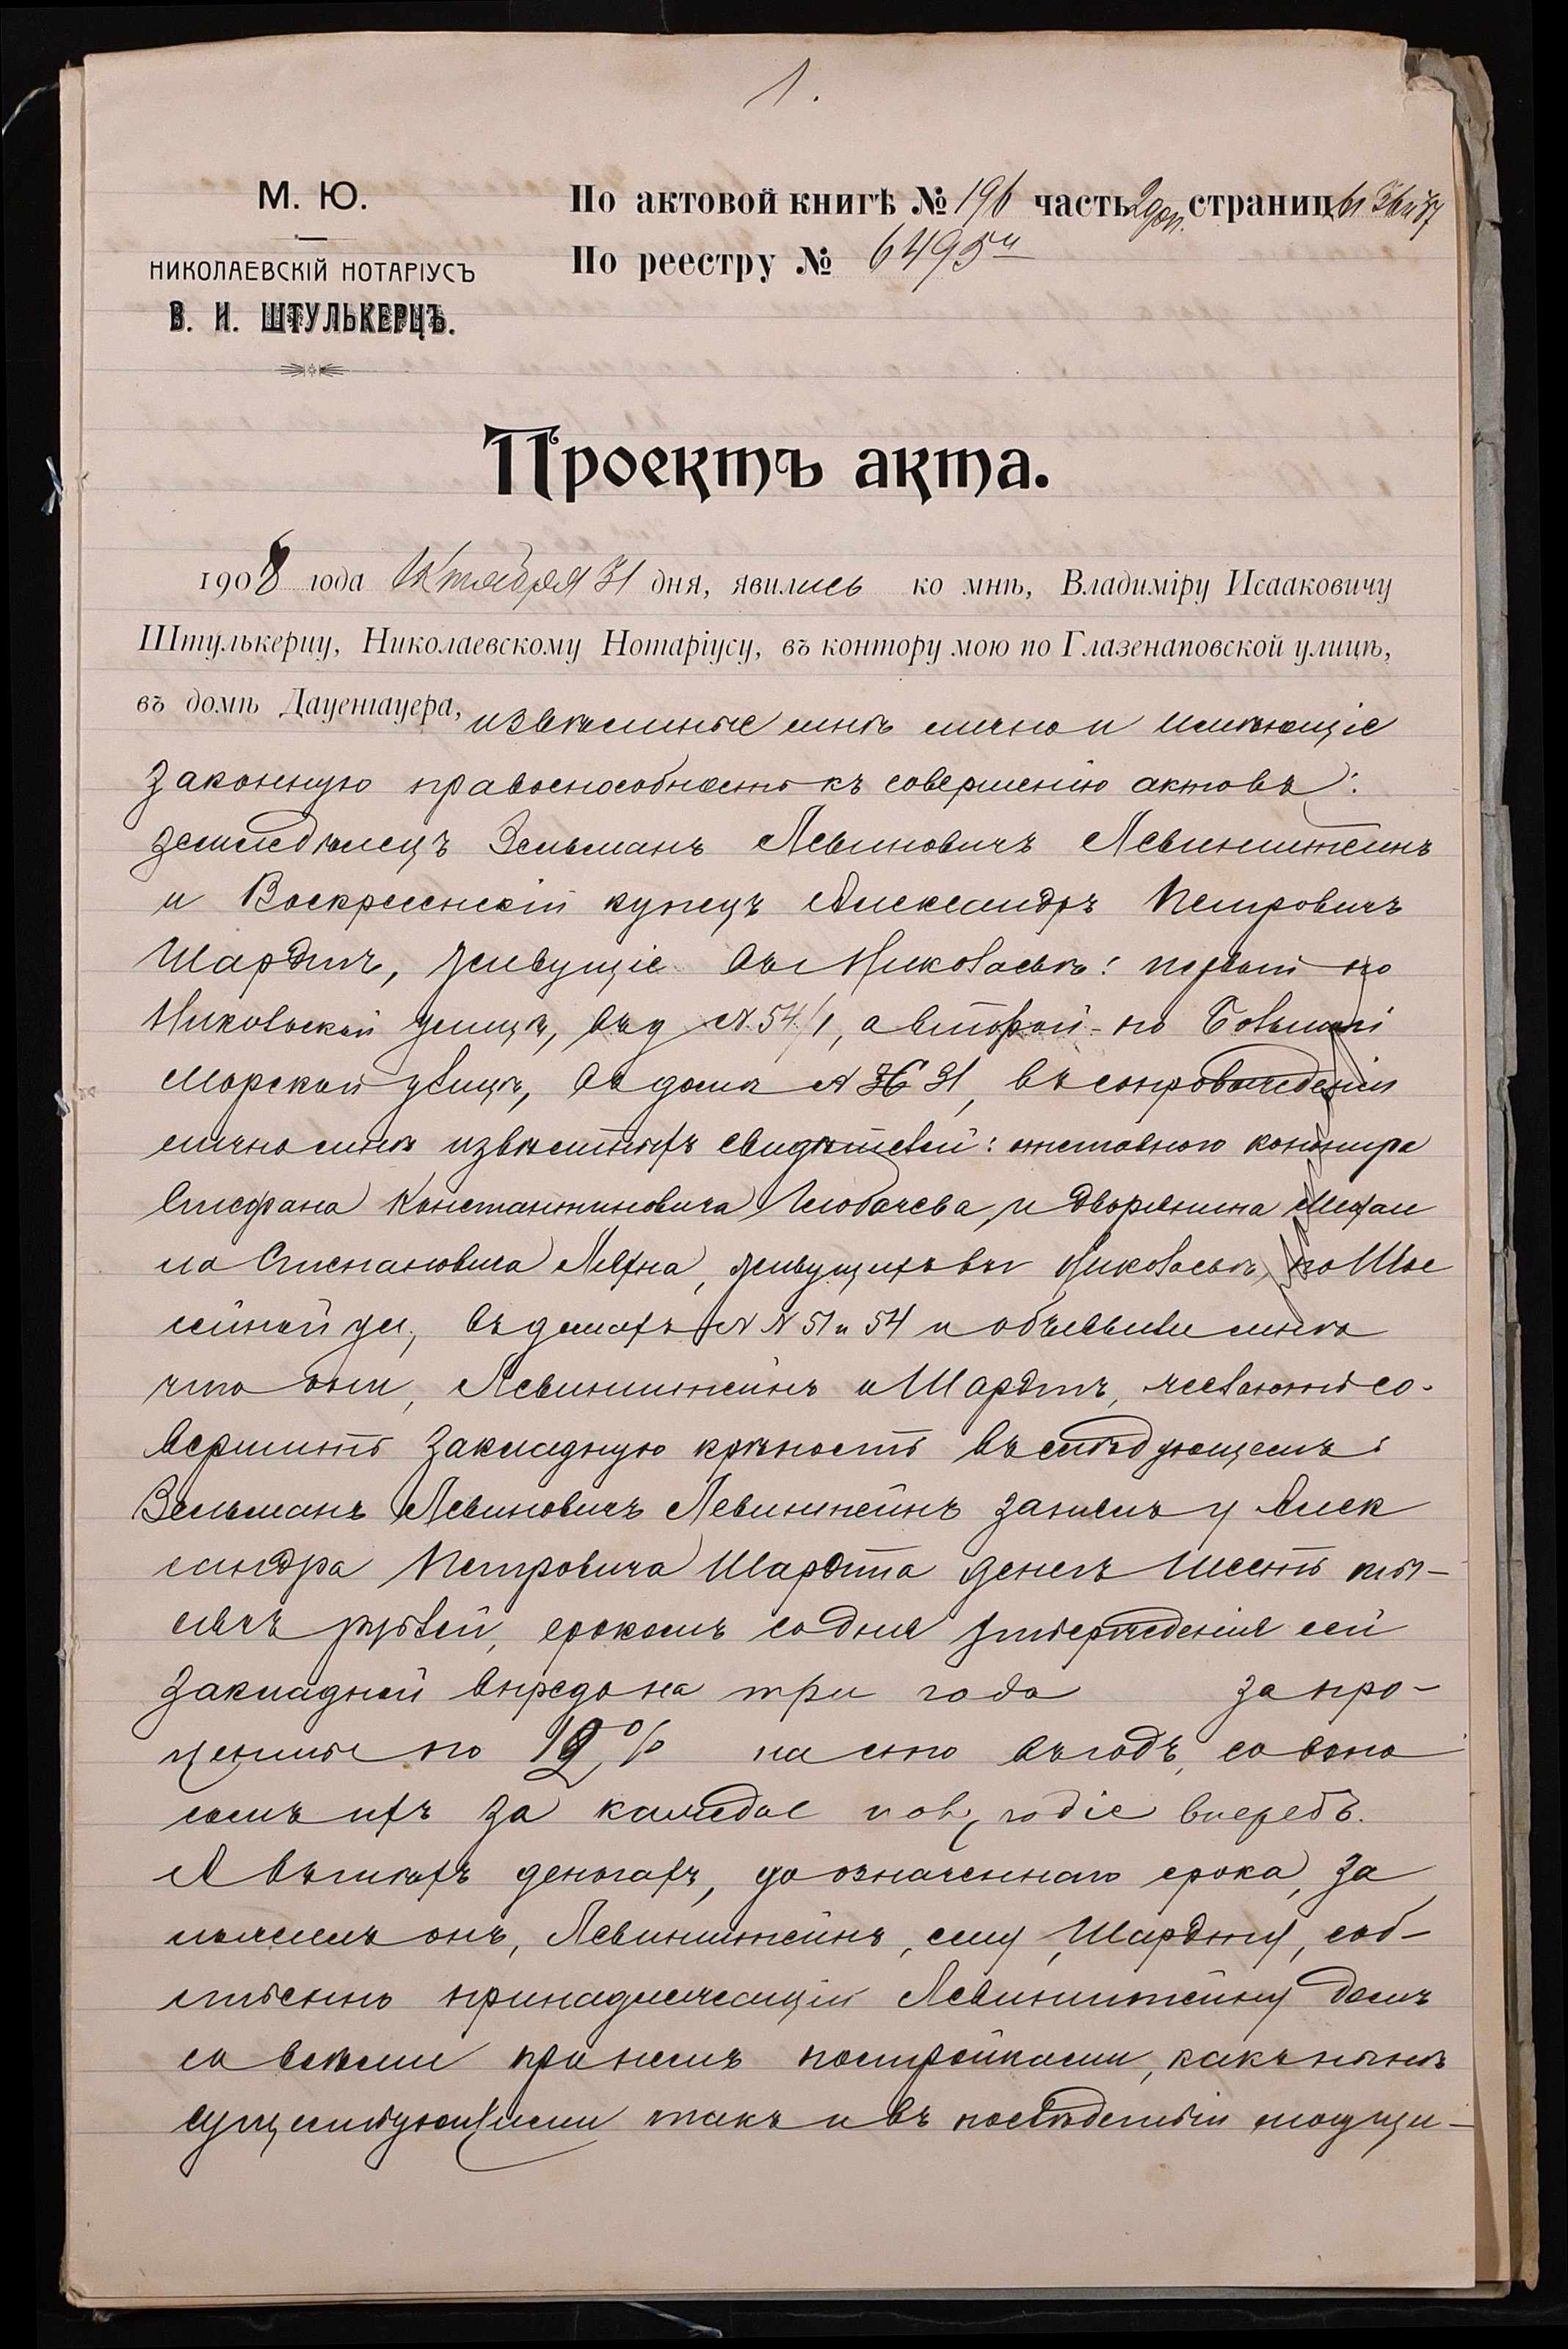 1.
М. Ю.
НИКОЛАЕВСКІЙ НОТАРІУСЪ
В. И. ШТУЛЬКЕРЦЪ.
По актовой книгѣ № 196 часть 2 доп. страницы
По реестру № 6495
Проектъ акта.
1908 года Октября 31 дня, явились ко мнѣ, Владиміру Исааковичу
Штулькерцу, Николаевскому Нотаріусу, въ контору мою по Глазенаповской улицѣ,
въ домѣ Дауенгауера, извѣстные мнѣ лично и имѣющіе
законную правоспособность къ совершенію актовъ:
земледѣлецъ Зельманъ Левиновичъ Левинштейнъ
и Воскресенскій купецъ Александръ Петровичъ
Шардтъ, живущіе въ Николаевѣ: первый по
Никольской улицѣ, въ д № 54/1, а второй - по Большой
Морской улицѣ, въ домѣ № 31, въ сопровожденіи
лично мнѣ извѣстныхъ свидѣтелей: отставного
Константиновича и дворянина Михаи
ла Степановича живущихъ въ Николаевѣ, по
въ домахъ № № 51 и 54 и объявили мнѣ
что они, Левинштейнъ и Шардтъ, желаютъ со-
вершить закладную крѣпость въ слѣдующемъ:
Зельманъ Левиновичъ Левинштейнъ занялъ у Алек
сандра Петровича Шардта денегъ шесть ты-
сячъ рублей, срокомъ со дня утвержденія сей
закладной впредь на три года за про-
центы по 12% на сто въ годъ, со взно
сомъ ихъ за каждое полугодіе впередъ.
А въ тѣхъ деньгахъ, до означеннаго срока, за
ложилъ онъ, Левинштейнъ, ему, Шардту, соб-
ственно принадлежащій Левинштейну домъ
со всѣми при немъ постройками, какъ нынѣ
существующими такъ и въ послѣдствіи могущи-